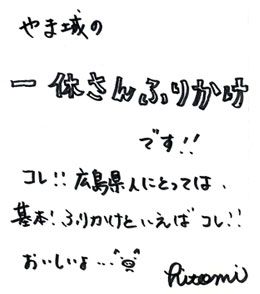 やま城の
一休さんふりかけ
です!!
コレ!! 広島県人にとっては、
基本! ふりかけといえばコレ!!
おいしいよ…
Hitomi